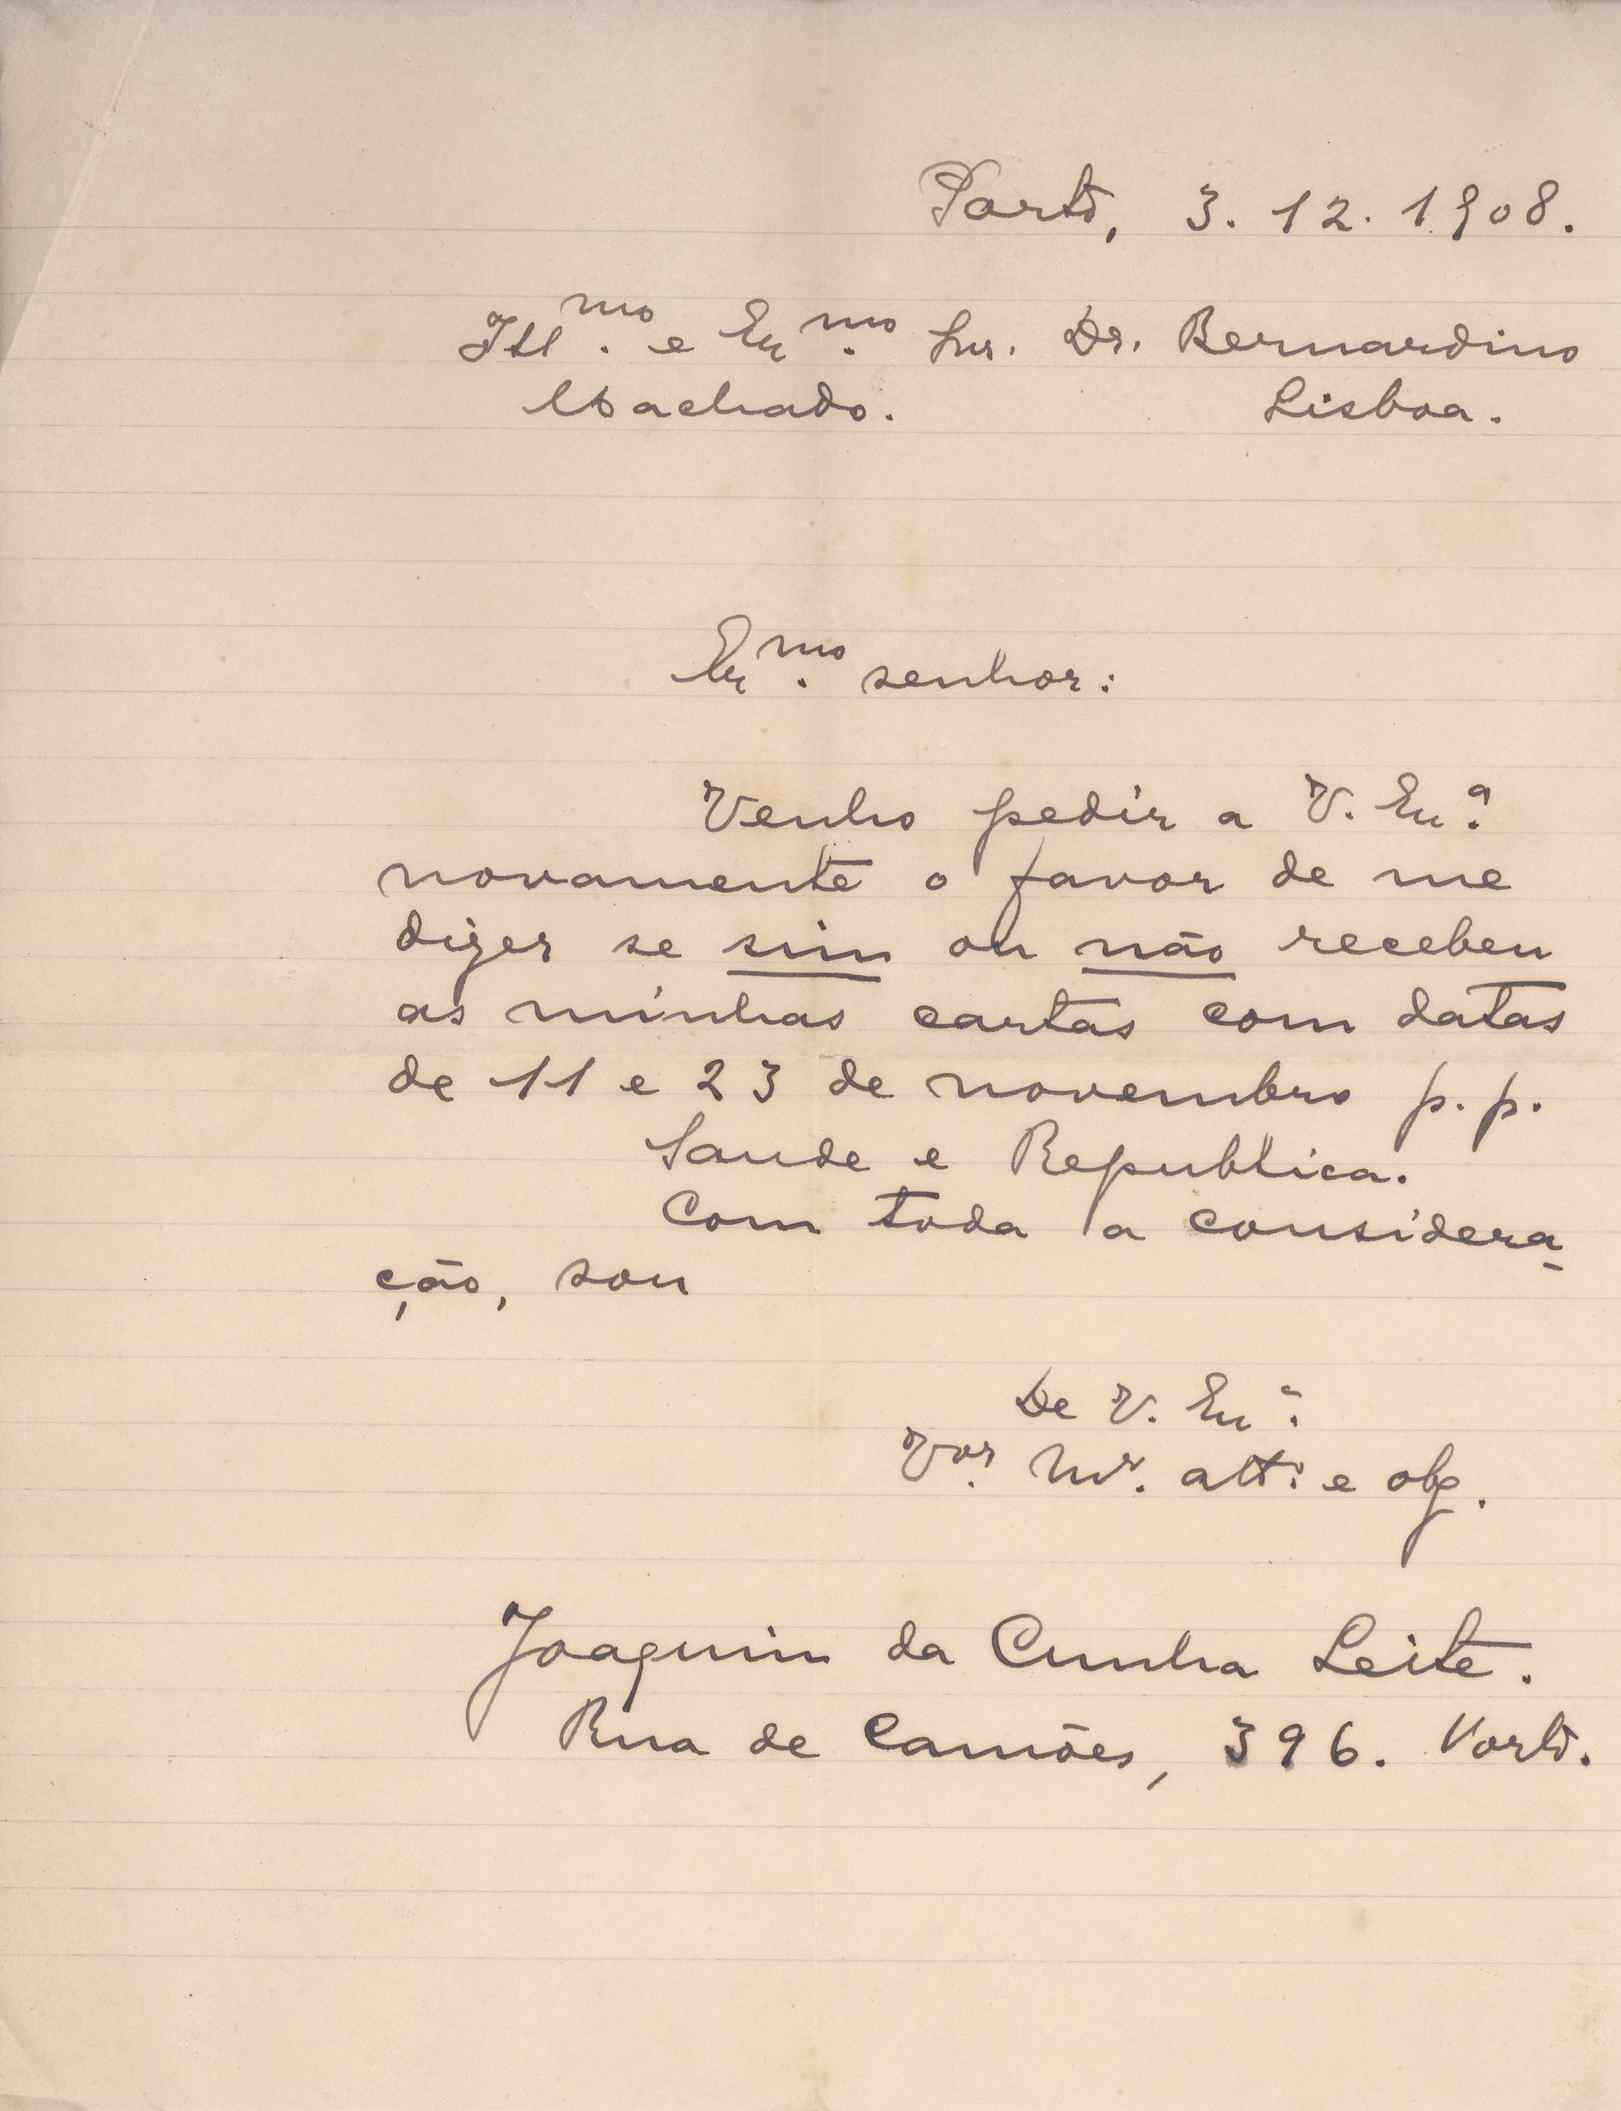 Porto, 3.12.1908.
Ill.mo e Ex.mo Snr. Dr. Bernardino
Machado. Lisboa.
Ex.mo senhor:
Venho pedir a V. Ex.a
novamente o favor de me
dizer se sim ou não recebeu
as minhas cartas com datas
de 11 e 23 de novembro p. p.
Saude e Republica.
Com toda a considera-
ção, sou
De V. Ex.a
V.or M.r att.º e obg.
Joaquim da Cunha Leite.
Rua de Camões, 396. Porto.